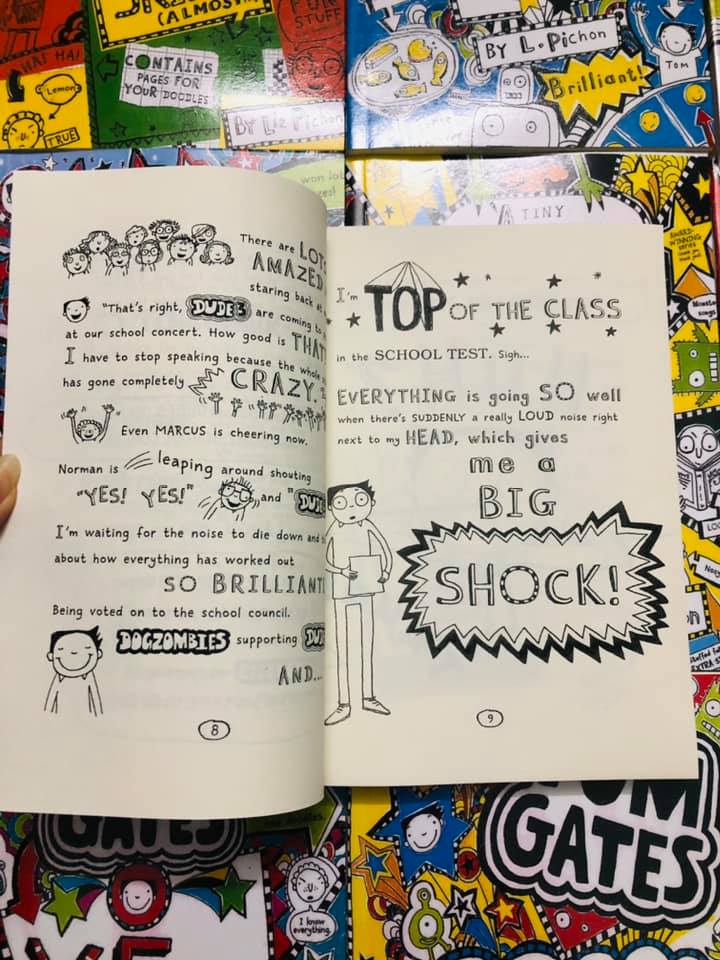 HA! HA!
Lemon
TRUE
(ALMOST)
CONTAINS
PAGES FOR
YOUR DOODLES
STUFF
By Liz Pichon
By L. Pichon
Brilliant!
TOM
A TINY
AWARD-
WINNING
series
There are LOTS
AMAZED
staring back at
"That's right, DUDE3 are coming to
at our school concert. How good is THAT
I have to stop speaking because the whole
has gone completely CRAZY.
Even MARCUS is cheering now.
Norman is leaping around shouting
"YES! YES!" and "DUDE
I'm waiting for the noise to die down and
about how everything has worked out
SO BRILLIANT!
Being voted on to the school council.
DOGZOMBIES supporting DUD
AND...
8
I'm TOP OF THE CLASS
in the SCHOOL TEST. Sigh...
EVERYTHING is going SO well
when there's SUDDENLY a really LOUD noise right
next to my HEAD, which gives
me a
BIG
SHOCK!
9
GATES
I know
everything.
TOM
GATES